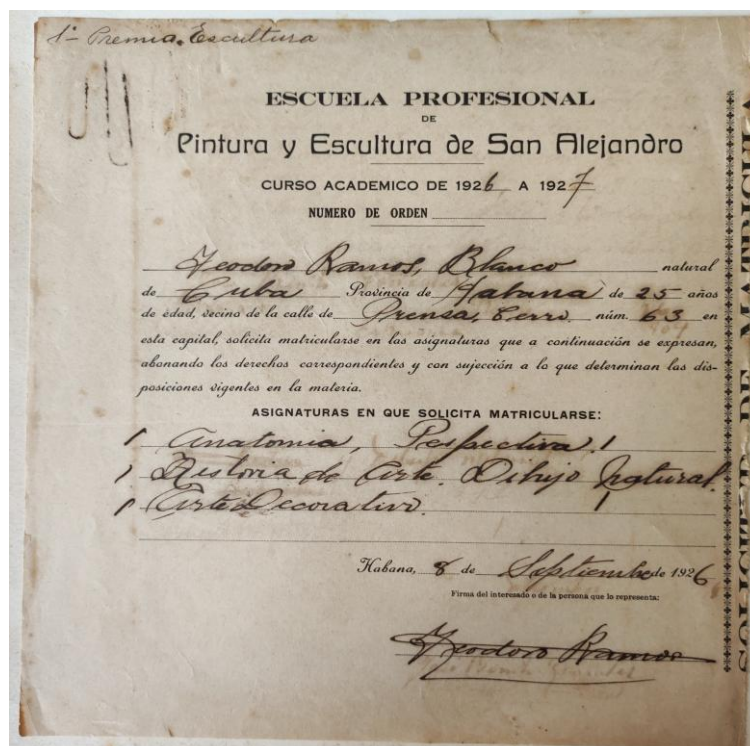 1º Premio. Escultura
ESCUELA PROFESIONAL
DE
Pintura y Escultura de San Alejandro
CURSO ACADEMICO DE 1926 A 1927
NUMERO DE ORDEN
Teodoro Ramos, Blanco natural
de Cuba Provincia de Habana de 25 años
de edad, vecino de la calle de Prensa, Cerro. núm. 63 en
esta capital, solicita matricularse en las asignaturas que a continuación se expresan,
abonando los derechos correspondientes y con sujección a lo que determinan las dis-
posiciones vigentes en la materia.
ASIGNATURAS EN QUE SOLICITA MATRICULARSE:
Anatomia, Perspectiva.
Historia de Arte. Dibujo Natural.
Arte Decorativo.
Habana, 8 de Septiembre de 1926
Firma del interesado o de la persona que lo representa:
Teodoro Ramos
SOLICITUD DE MATRICULA